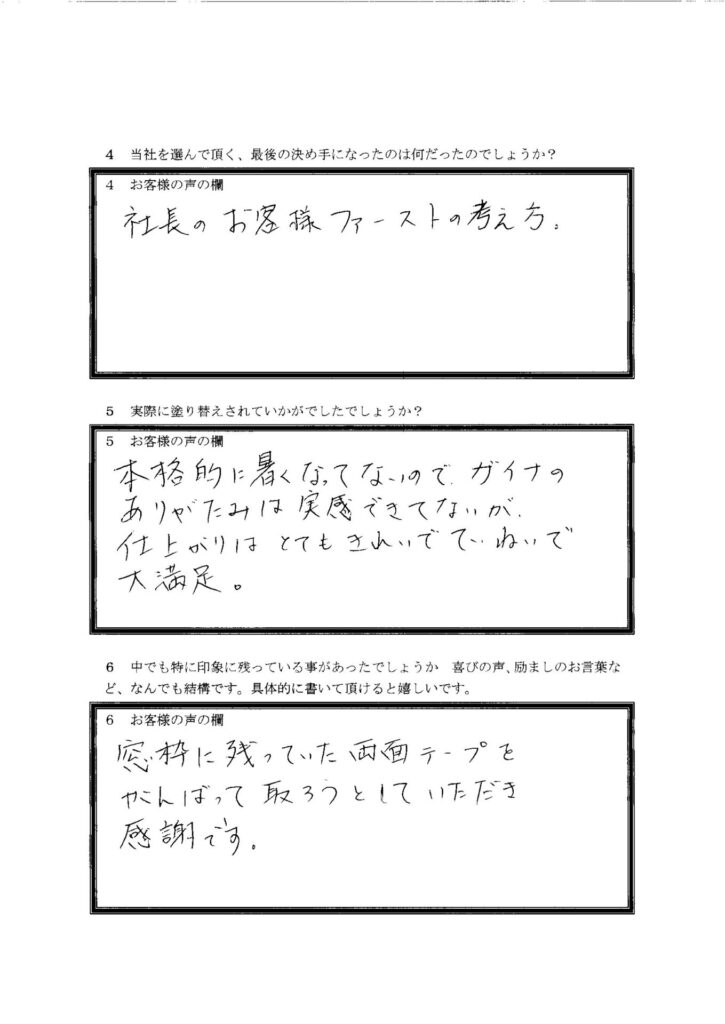 4 当社を選んで頂く、最後の決め手になったのは何だったのでしょうか？
4 お客様の声の欄
社長のお客様ファーストの考え方。
5 実際に塗り替えされていかがでしたでしょうか？
5 お客様の声の欄
本格的に暑くなってないので、ガイナの
ありがたみは実感できてないが、
仕上がりはとてもきれいでていねいで
大満足。
6 中でも特に印象に残っている事があったでしょうか 喜びの声、励ましのお言葉な
ど、なんでも結構です。具体的に書いて頂けると嬉しいです。
6 お客様の声の欄
窓枠に残っていた両面テープを
がんばって取ろうとしていただき
感謝です。